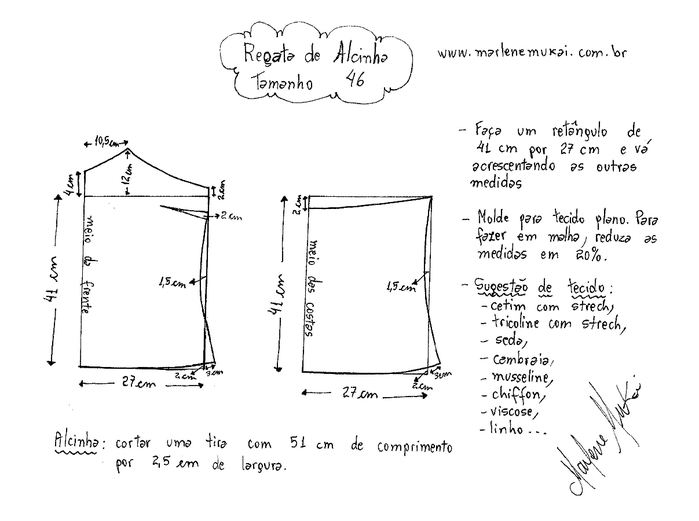 Regata de Alcinha
Tamanho 46
www.marlenemukai.com.br
10,5cm
4cm
12cm
2cm
2cm
meio da frente
41 cm
1,5cm
2cm
3cm
27cm
2cm
meio das costas
41 cm
1,5cm
2cm
3cm
27 cm
- Faça um retângulo de
41 cm por 27 cm e vá
acrescentando as outras
medidas
- Molde para tecido plano. Para
fazer em malha, reduza as
medidas em 20%.
- Sugestão de tecido:
- cetim com strech,
- tricoline com strech,
- seda,
- cambraia,
- musseline,
- chiffon,
- viscose,
- linho...
Alcinha: cortar uma tira com 51 cm de comprimento
por 2,5 cm de largura.
Marlene Mukai